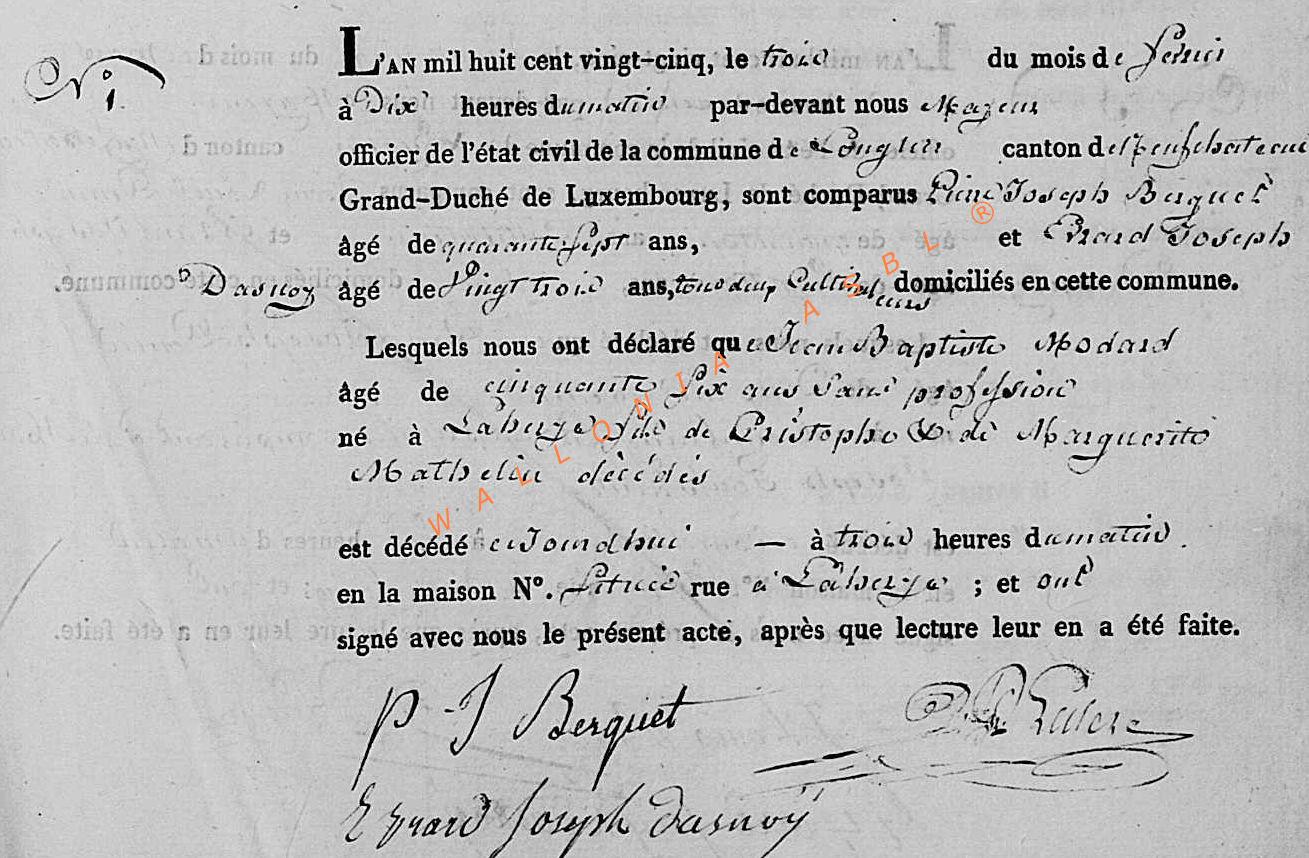 N° 1.
L'AN mil huit cent vingt-cinq, le trois du mois de
à Dix heures du matin par-devant nous Mayeur
officier de l'état civil de la commune de Longlier canton de neufchateau
Grand-Duché de Luxembourg, sont comparus Pierre Joseph Berquet
âgé de quarante sept ans, et Evrard Joseph
Dasnoy âgé de vingt trois ans, tous deux Cultivateurs domiciliés en cette commune.
Lesquels nous ont déclaré que Jean Baptiste Modard
âgé de cinquante six ans sans profession
né à Laherye fils de Cristophe & de Marguerite
Mathelin décédés
est décédé cejourdhui — à trois heures du matin.
en la maison N°. située rue à Laherye ; et ont
signé avec nous le présent acte, après que lecture leur en a été faite.
P J Berquet
Evrard Joseph dasnoÿ
WALLONIA ASBL ®